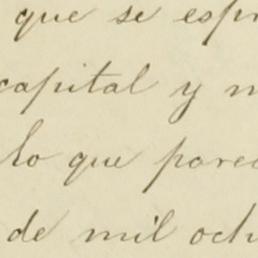 que se espr
capital y n
lo que parec
de mil och